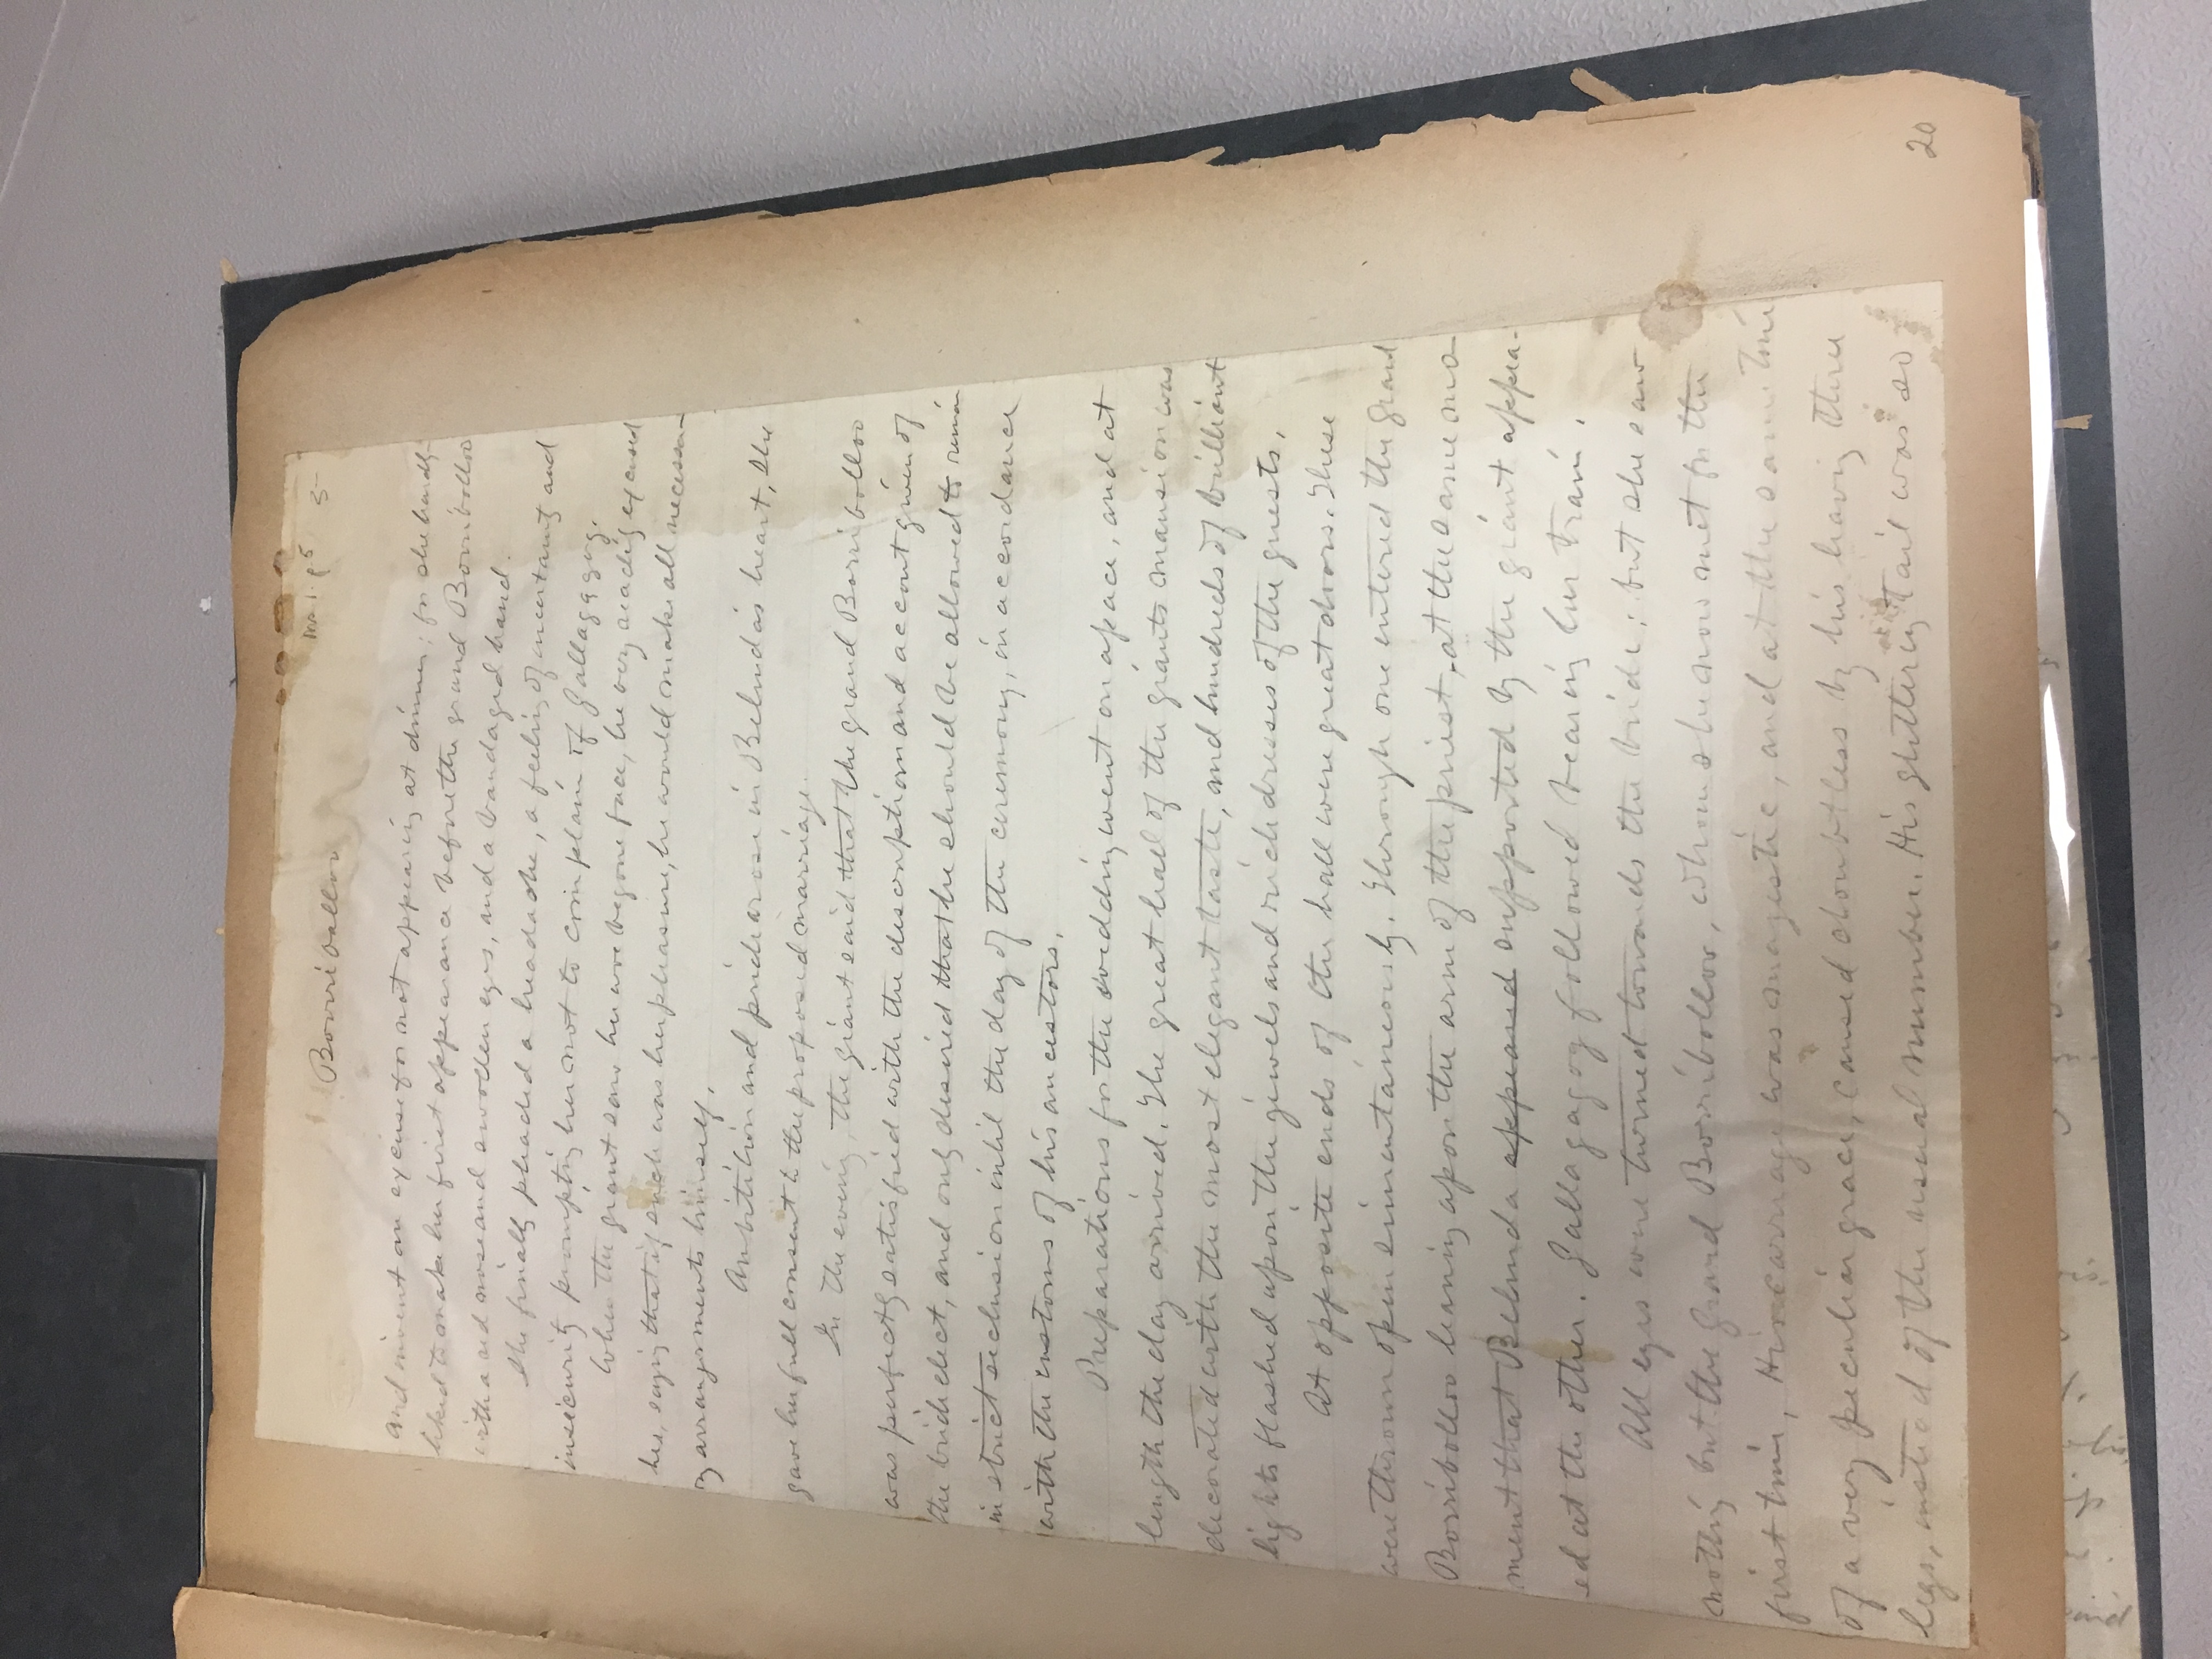 Borriballoo
Ms 1. p. 5 5
and invent an excuse for not appearing at dinner; for she hardly
liked to make her first appearance before the grand Borribolloo
with a red nose and swollen eyes, and a bandaged hand.
She finally pleaded a headache, a feeling of uncertainty and
insecurity prompting her not to complain of Gallagagog.
When the giant saw her woe begone face, he very readily excused
her, saying that if such was her pleasure, he would make all necessa-
ry arrangements himself.
Ambitition and pride arose in Belinda's heart, She
gave her full consent to the proposed marriage.
In the evening, the giant said that the grand Borribolloo
was perfectly satisfied with the description and accout given of
the bride elect, and only desired that he should be allowed to remain
in strict seclusion until the day of the ceremony, in accordance
with the customs of his ancestors.
Preparations for the wedding went on apace, and at
length the day arrived. The great hall of the giants mansion was
decorated with the most elegant taste, and hundreds of brilliant
lights flashed upon the jewels and rich dresses of the guests.
At opposite ends of the hall were great doors. These
were thrown open simentaneously. Through one entered the grand
Borribolloo leaning upon the arm of the priest, at the same mo-
ment that Belinda appeared supported by the giant appea-
ed at the other. Gallagagog followed bearing her train.
All eyes were turned towards the bride; but she saw
nothing but the grand Borribolloo, whom she now met for the
first time, His carriage was majestic, and at the same time
of a very peculiar grace, caused doubtless by his having three
legs, instead of the usual number. His glittering tail was so
20